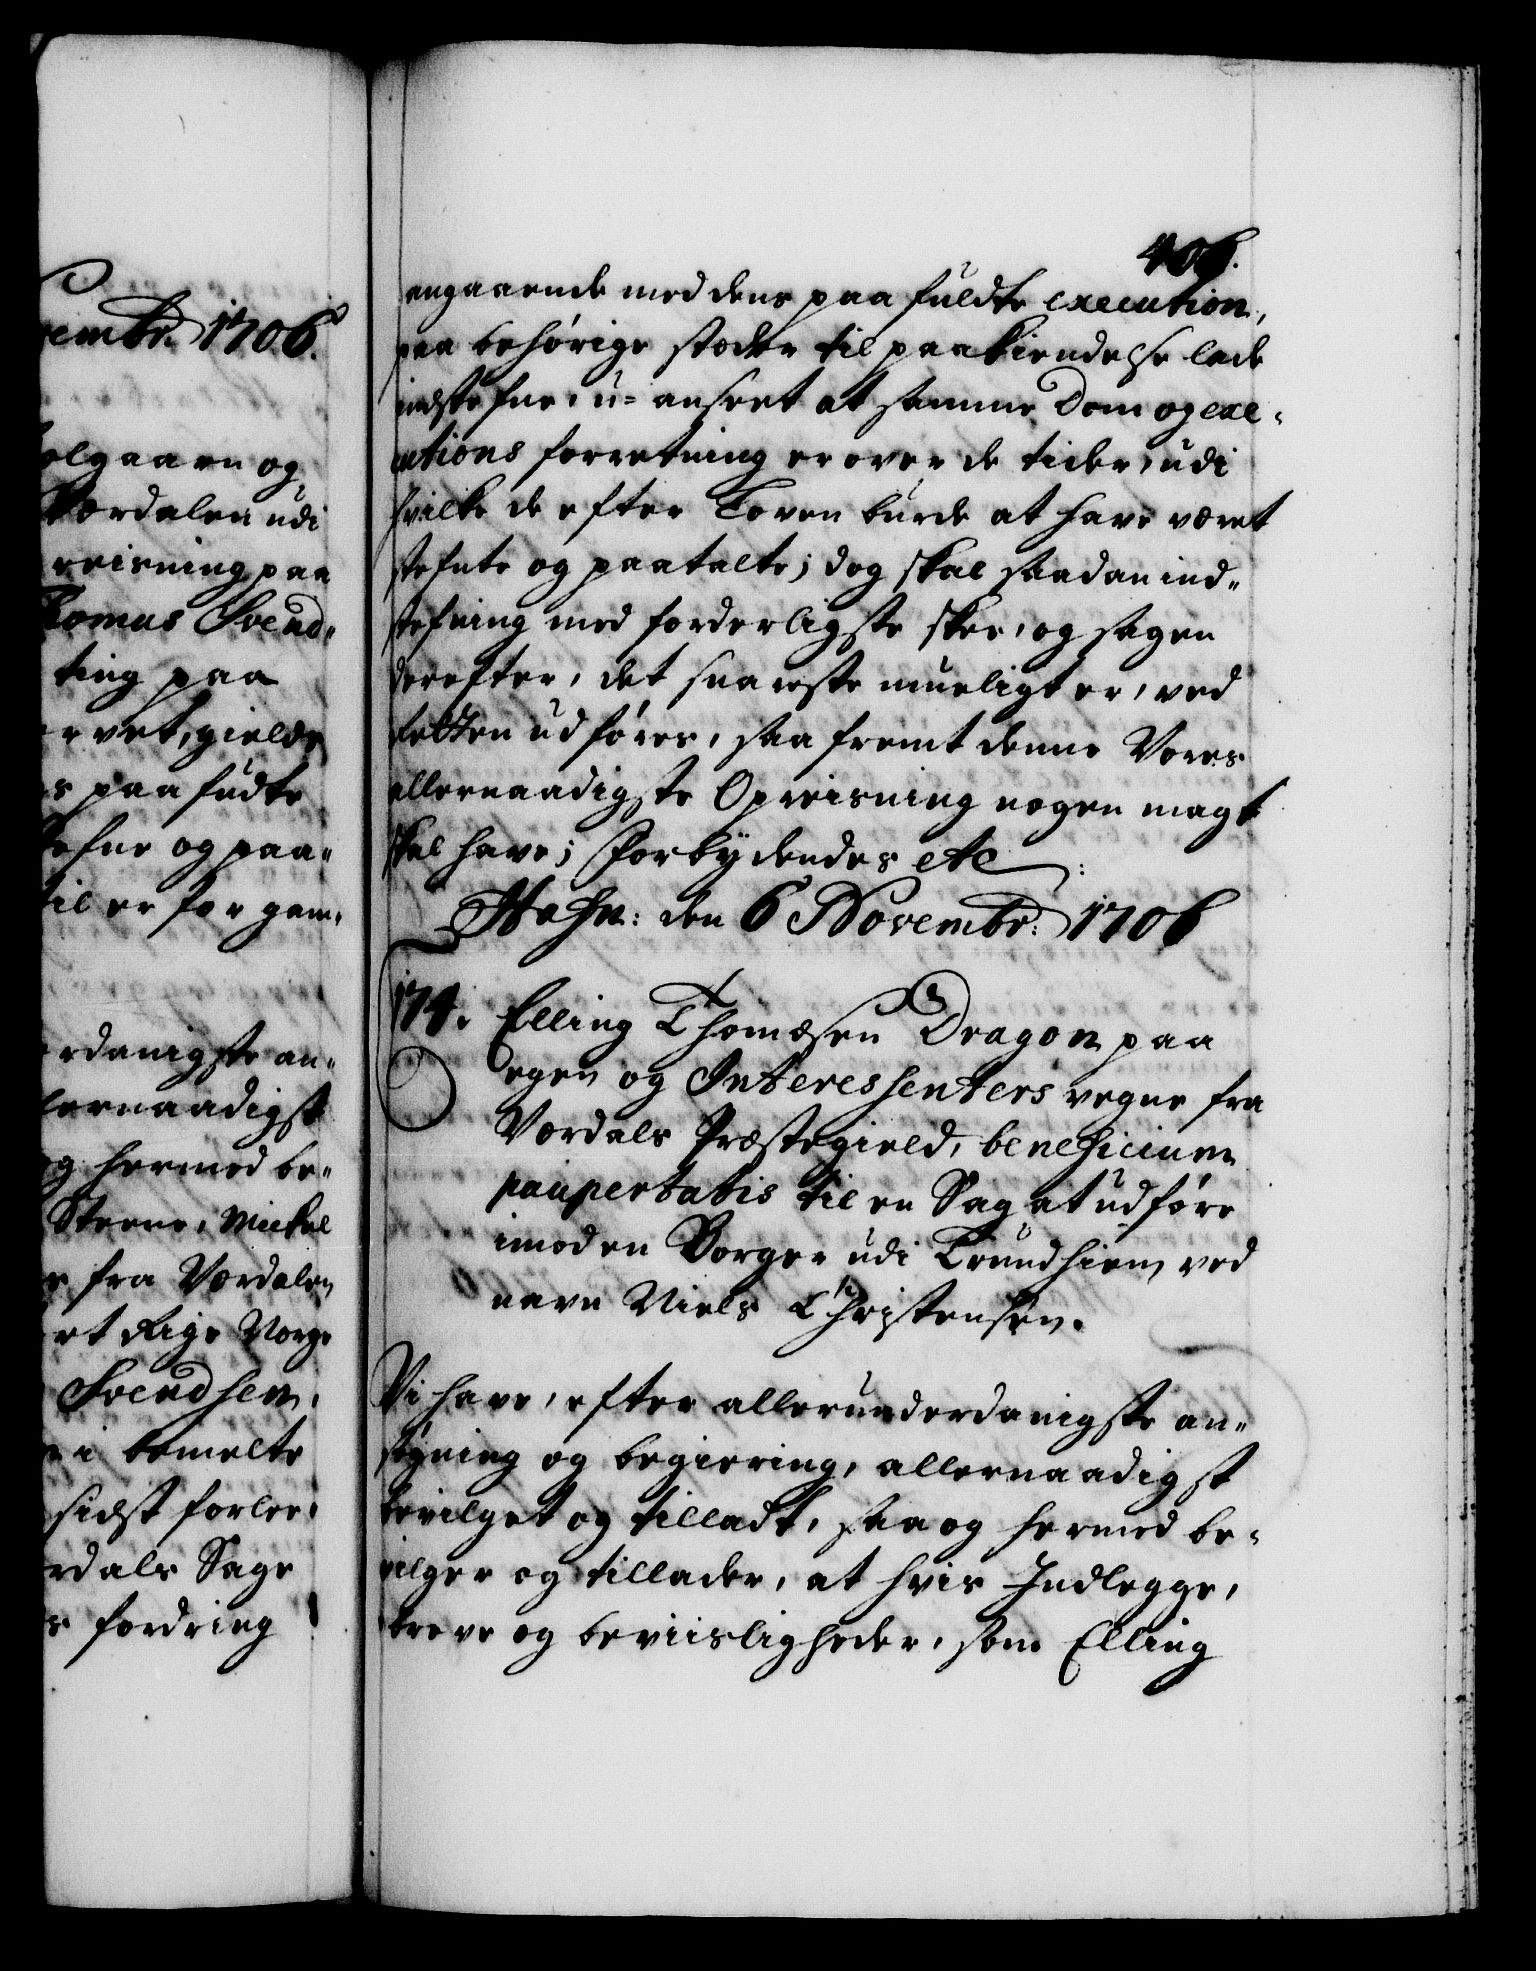 embr. 1706.
olgaarn og
Værdalen udi
reisning paa
Tomas Svend„
ting paa
rvet, gields
s paafudte
tefne og paa„
til er for gam„
rdanigste an„
lernaadigst
g hermed be„
Steene, Mickel
e fra Værdalen
rt Rige Norge
Svendsen,
i bemelte
sidst forlee„
rdals Sage
s fordring
406.
angaaende med dens paafuldte execution,
paa behörige stæder til paakiendelse lade
indstefne, u-anseet at samme Dom og exe„
cutions forretning er over de tider, udi
hvilke de efter Loven burde at have været
stefnte og paatalte; dog skal saadan ind„
stefning med forderligste skee, og sagen
derefter, det snareste mueligt er, ved
Retten udföres, saa fremt denne Vores
allernaadigste Opreisning nogen magt
skal have; Forbydendes etc:
Hafn: den 6 Novembr: 1706
174. Elling Thomæsen Dragon paa
egen og Interessenters vegne fra
Værdals Præstegield, beneficium
paupertatis til en Sag at udföre
imod en Borger udi Trundhiem ved
navn Niels Christensen.
Vi have, efter allerunderdanigste an„
sögning og begiering, allernaadigst
bevilget og tilladt, saa og hermed be„
vilger og tillader, at hvis Indlegge,
breve og beviisligheder, som Elling